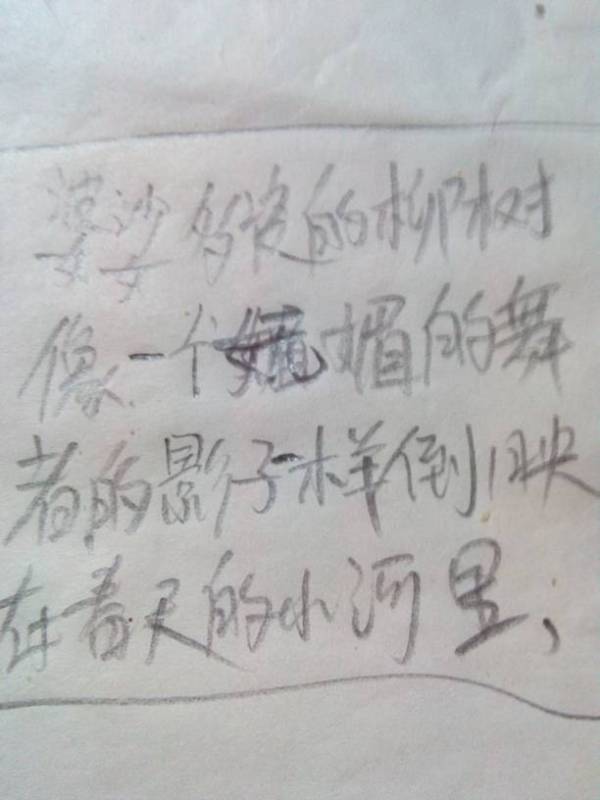 婆娑多姿的柳树
像一个媚的舞
者的影子一样倒映
在春天的小河里，